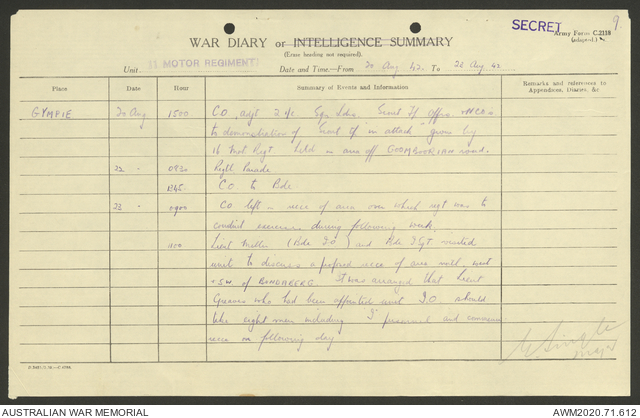 SECRET
9.
Army Form C.2118
(adapted.)
WAR DIARY or INTELLIGENCE SUMMARY
(Erase heading not required).
Unit MOTOR REGIMENT
Date and Time—From 20 Aug 42. To 22 Aug. 42
Place Date Hour Summary of Events and Information Remarks and references to Appendices, Diaries, &c
GYMPIE 20 Aug 1500 CO, adjt 2 i/c Sqn Ldrs Scout Tp offrs + NCO's
to demonstration of "Scout Tp in attack" given by
16 Mot Regt held in area off GOOMBOORIAN road.
22 - 0830 Regtl Parade
1345 CO to Bde.
23 - 0900 CO left on recce of area over which regt was to
conduct exercises during following week.
1100 Lieut (Bde I.O) and Bde I Sgt visited
unit to discuss a proposed recce of area north, west
+ S.W. of BUNDABERG. It was arranged that Lieut
Greaves who had been appointed unit I.O. should
take eight men including "I" personnel and commence
recce on following day
Major
AUSTRALIAN WAR MEMORIAL
AWM2020.71.612